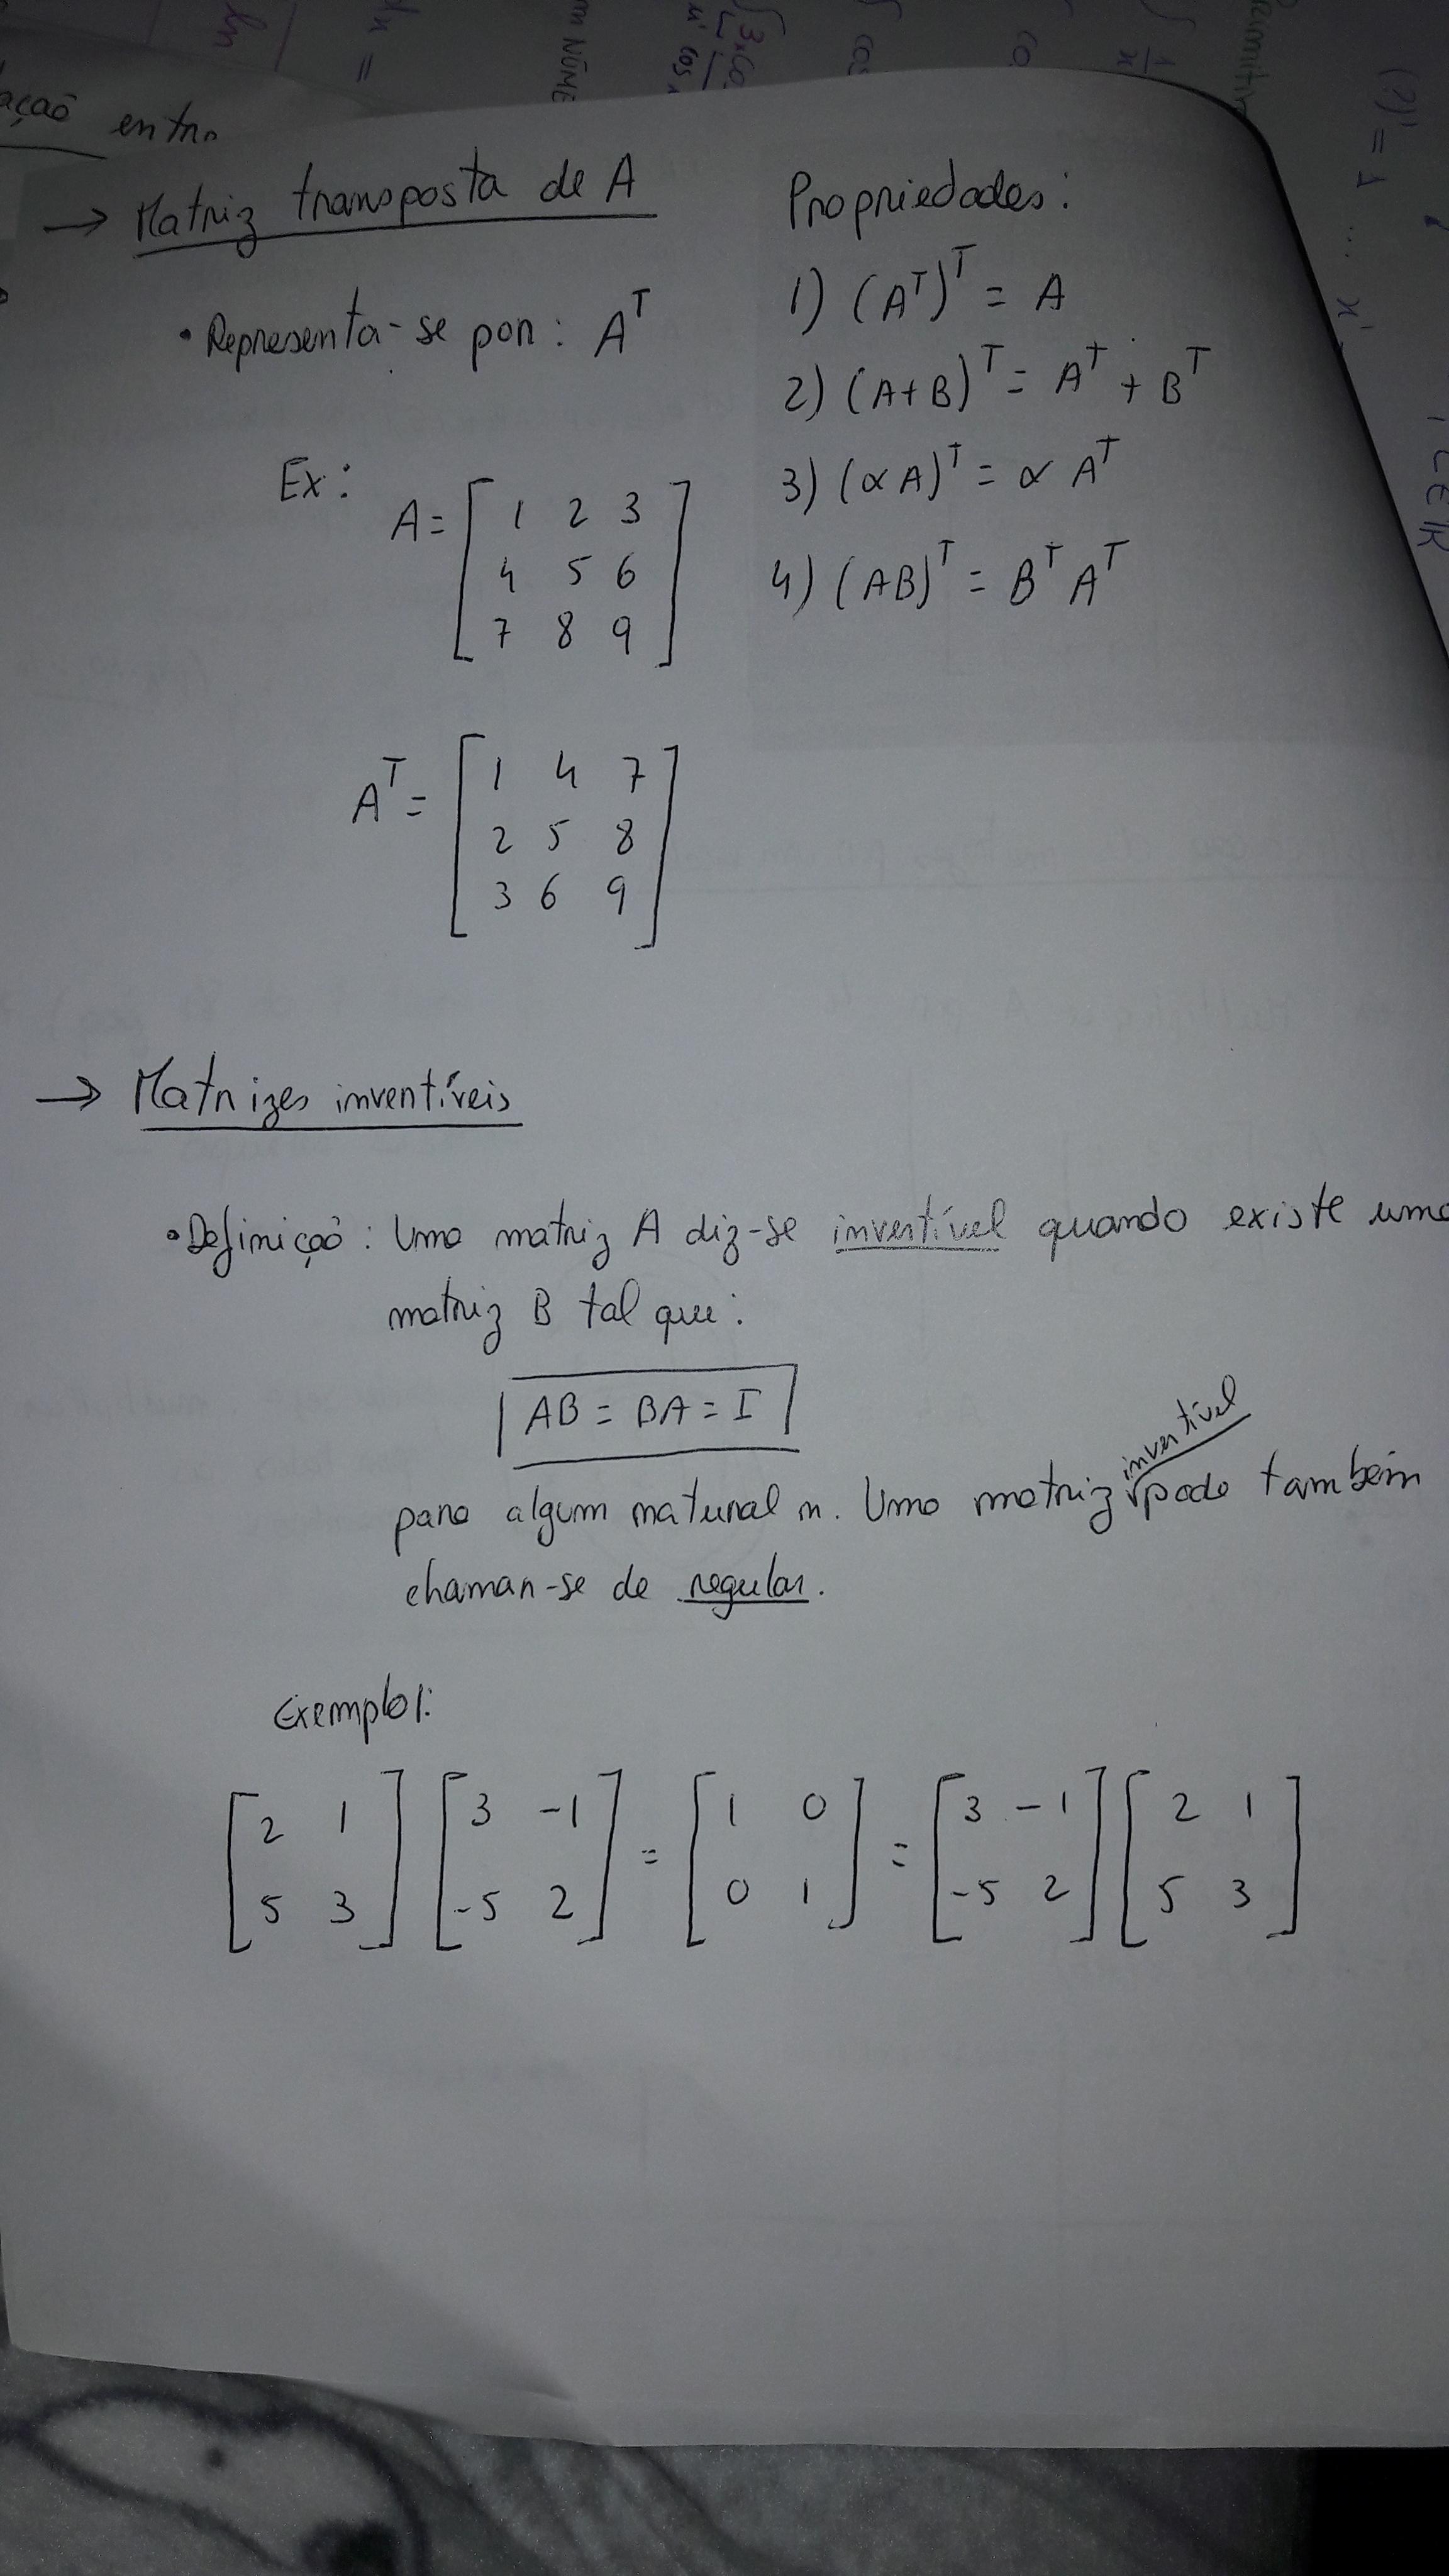 ação entre
→ Matriz transposta de A
• Representa-se por: A^T
Ex:
A = [ 1 2 3
4 5 6
7 8 9 ]
A^T = [ 1 4 7
2 5 8
3 6 9 ]
Propriedades:
1) (A^T)^T = A
2) (A+B)^T = A^T + B^T
3) (αA)^T = α A^T
4) (AB)^T = B^T A^T
→ Matrizes invertíveis
• Definição: Uma matriz A diz-se invertível quando existe uma
matriz B tal que:
AB = BA = I
para algum natural n. Uma matriz invertível pode também
chamar-se de regular.
Exemplo 1:
[ 2 1
5 3 ] [ 3 -1
-5 2 ] = [ 1 0
0 1 ] = [ 3 -1
-5 2 ] [ 2 1
5 3 ]